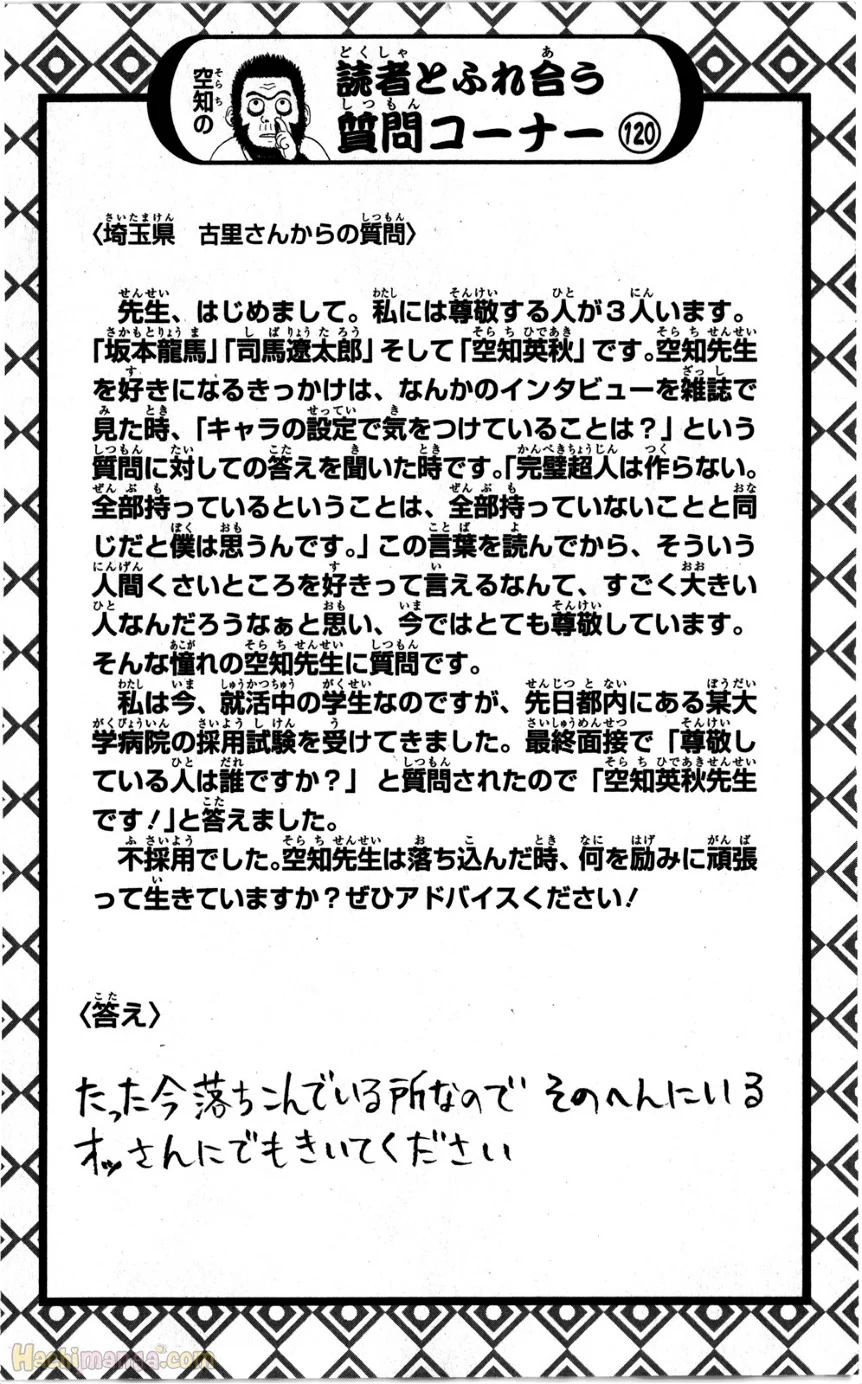 空知の
読者とふれ合う
質問コーナー 120
〈埼玉県　古里さんからの質問〉
先生、はじめまして。私には尊敬する人が３人います。
「坂本龍馬」「司馬遼太郎」そして「空知英秋」です。空知先生
を好きになるきっかけは、なんかのインタビューを雑誌で
見た時、「キャラの設定で気をつけていることは？」という
質問に対しての答えを聞いた時です。「完璧超人は作らない。
全部持っているということは、全部持っていないことと同
じだと僕は思うんです。」この言葉を読んでから、そういう
人間くさいところを好きって言えるなんて、すごく大きい
人なんだろうなぁと思い、今ではとても尊敬しています。
そんな憧れの空知先生に質問です。
私は今、就活中の学生なのですが、先日都内にある某大
学病院の採用試験を受けてきました。最終面接で「尊敬し
ている人は誰ですか？」と質問されたので「空知英秋先生
です！」と答えました。
不採用でした。空知先生は落ち込んだ時、何を励みに頑張
って生きていますか？ぜひアドバイスください！
〈答え〉
たった今落ちこんでいる所なので そのへんにいる
オッさんにでもきいてください
Hachimanga.com